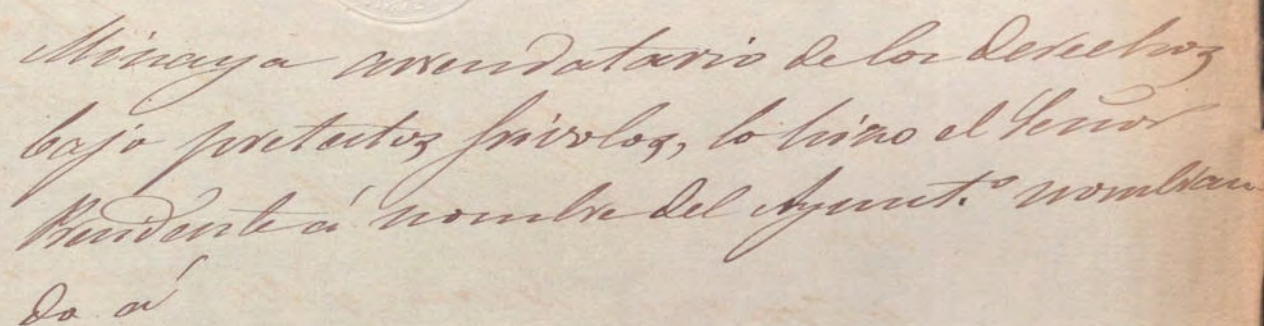 Minaya arrendatario de los derechos
bajo pretestos frivolos, lo hizo el Señor
Presidente á nombre del Ayunt.º nombran
do á